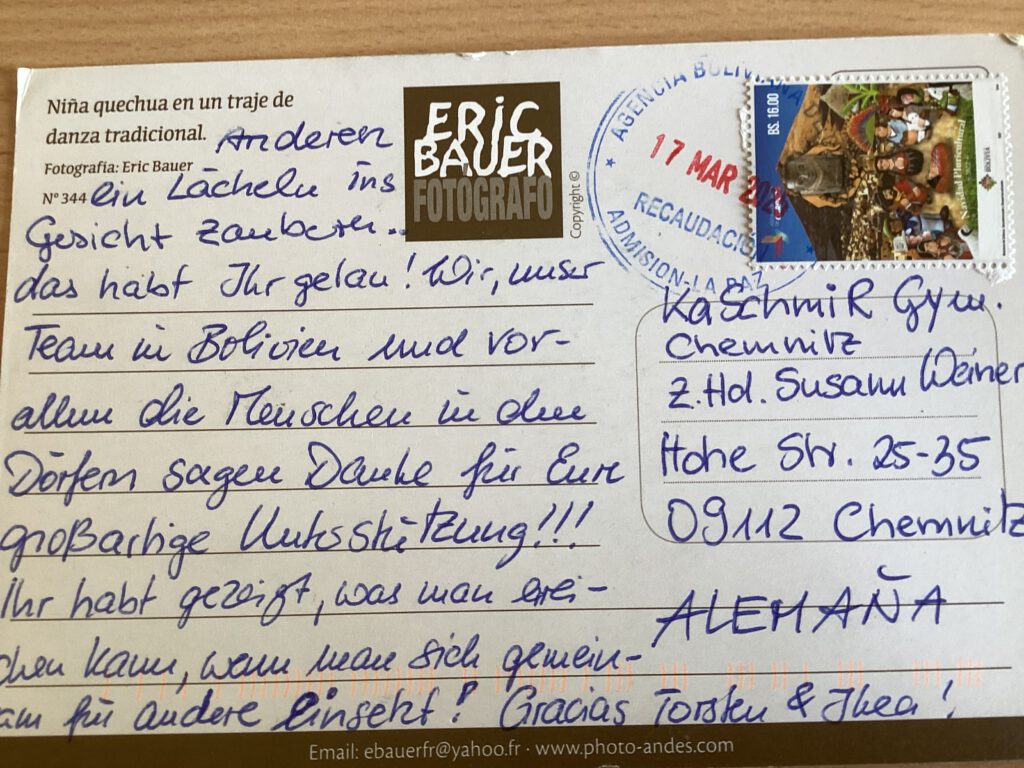 Niña quechua en un traje de
danza tradicional.
Fotografia: Eric Bauer
N° 344
ERIC
BAUER
FOTOGRAFO
Copyright ©
AGENCIA BOLIVIANA
17 MAR 2025
RECAUDACIÓN
ADMISION-LA PAZ
BS. 16.00
BOLIVIA
Anderen
ein Lächeln ins
Gesicht zaubern..
das habt Ihr getan! Wir, unser
Team in Bolivien und vor-
allem die Menschen in den
Dörfern sagen Danke für Eure
großartige Unterstützung!!!
Ihr habt gezeigt, was man errei-
chen kann, wenn man sich gemein-
sam für andere einsetzt! Gracias Torsten & Thea!
Kaschmir Gym.
Chemnitz
z.Hd. Susann Weiner
Hohe Str. 25-35
09112 Chemnitz
ALEMAÑA
Email: ebauerfr@yahoo.fr · www.photo-andes.com